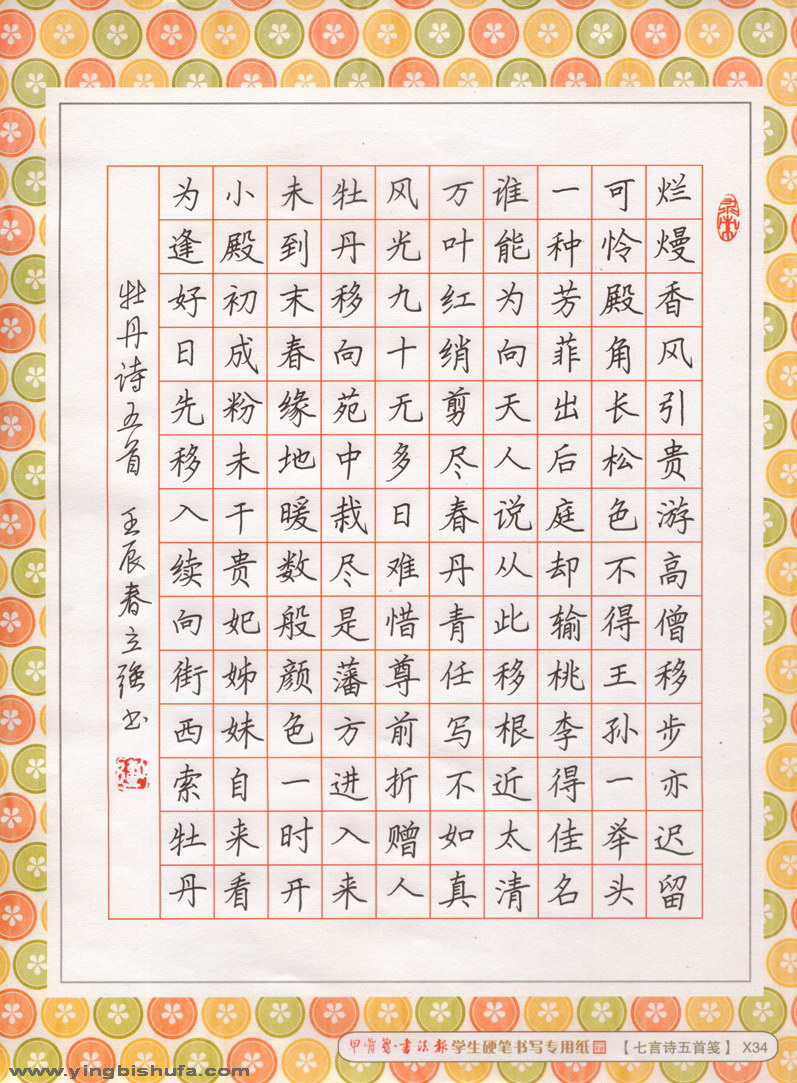 烂熳香风引贵游高僧移步亦迟留
可怜殿角长松色不得王孙一举头
一种芳菲出后庭却输桃李得佳名
谁能为向天人说从此移根近太清
万叶红绡剪尽春丹青任写不如真
风光九十无多日难惜尊前折赠人
牡丹移向苑中栽尽是藩方进入来
未到末春缘地暖数般颜色一时开
小殿初成粉未干贵妃姊妹自来看
为逢好日先移入续向街西索牡丹
牡丹诗五首 壬辰春立强书
甲骨文·书法报学生硬笔书写专用纸【七言诗五首笺】 X34
www.yingbishufa.com